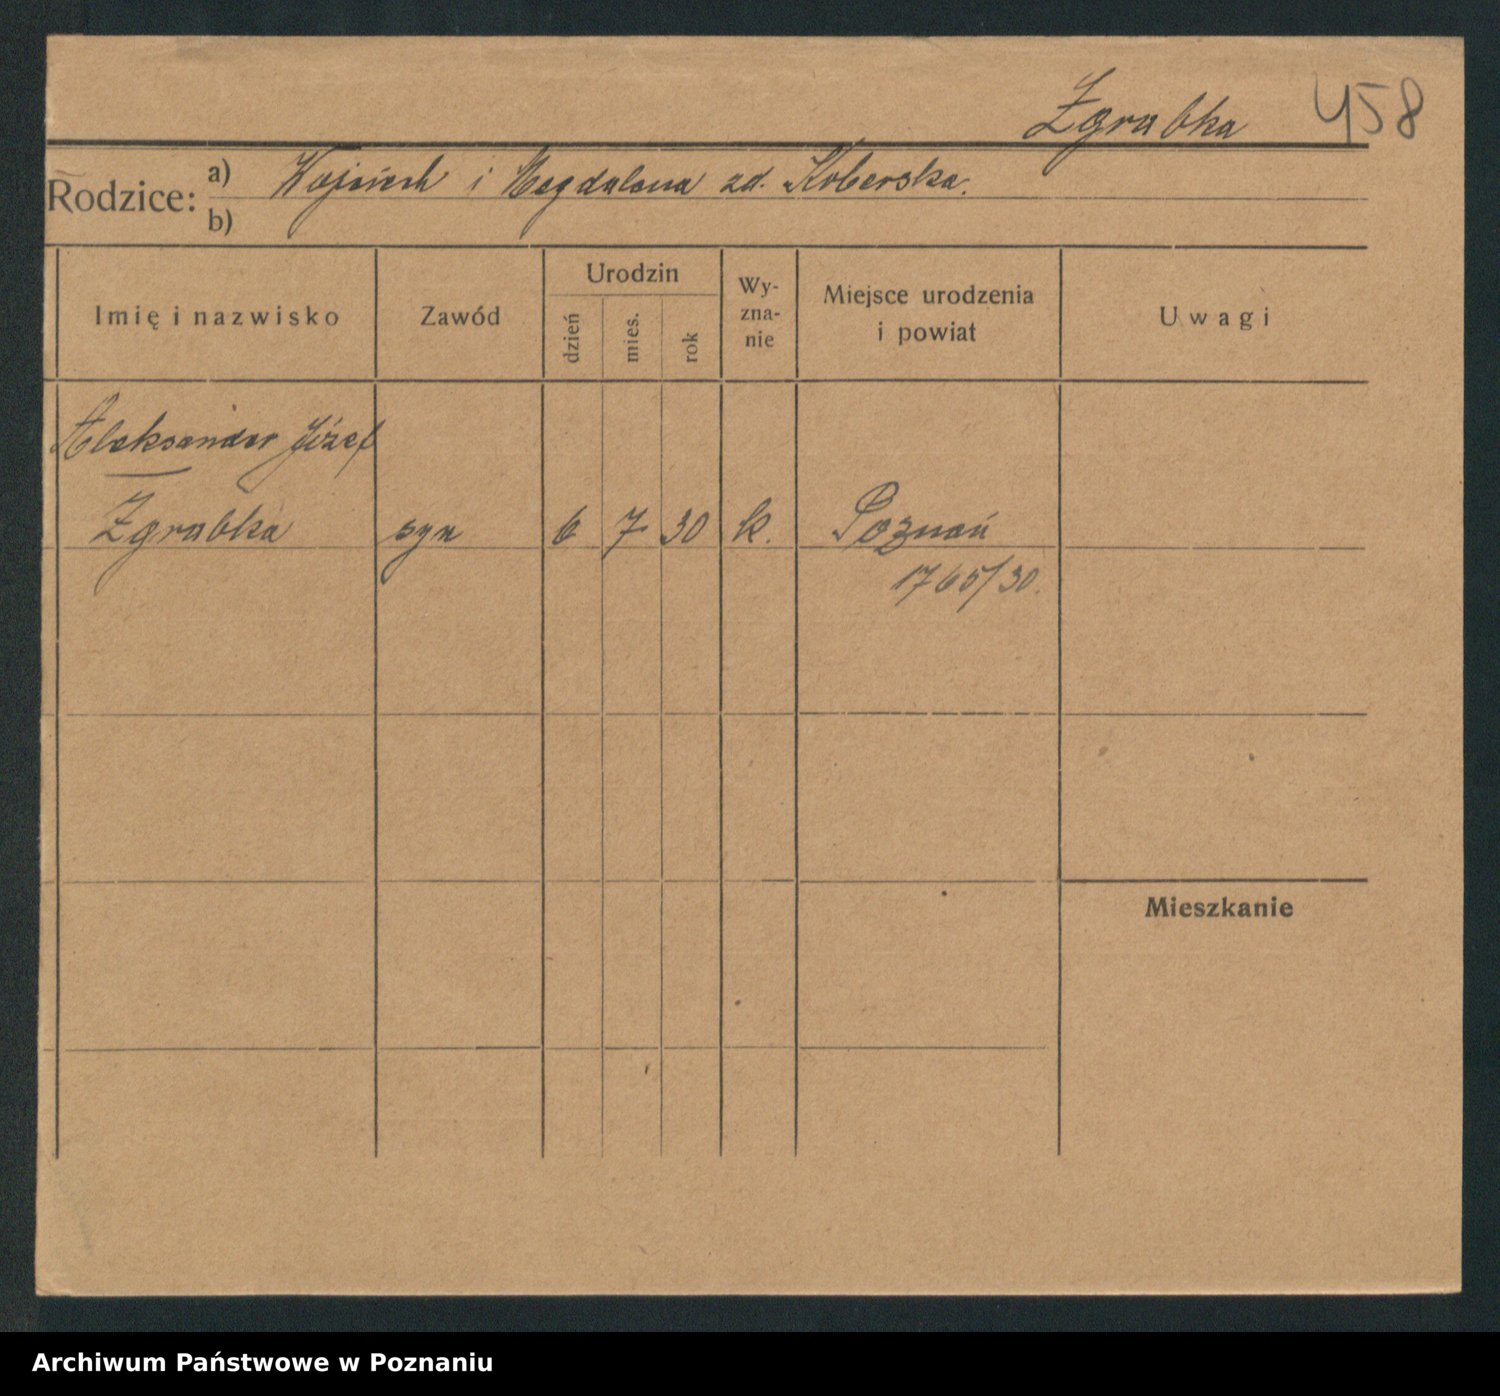 Zgrabka 458
Rodzice: a) Wojciech i Magdalena zd. Koberska.
b)
Imię i nazwisko
Zawód
Urodzin
dzień
mies.
rok
Wy-
zna-
nie
Miejsce urodzenia
i powiat
Uwagi
Aleksander Józef
Zgrabka syn 6 7 30 k. Poznań
1765/30.
Mieszkanie
Archiwum Państwowe w Poznaniu